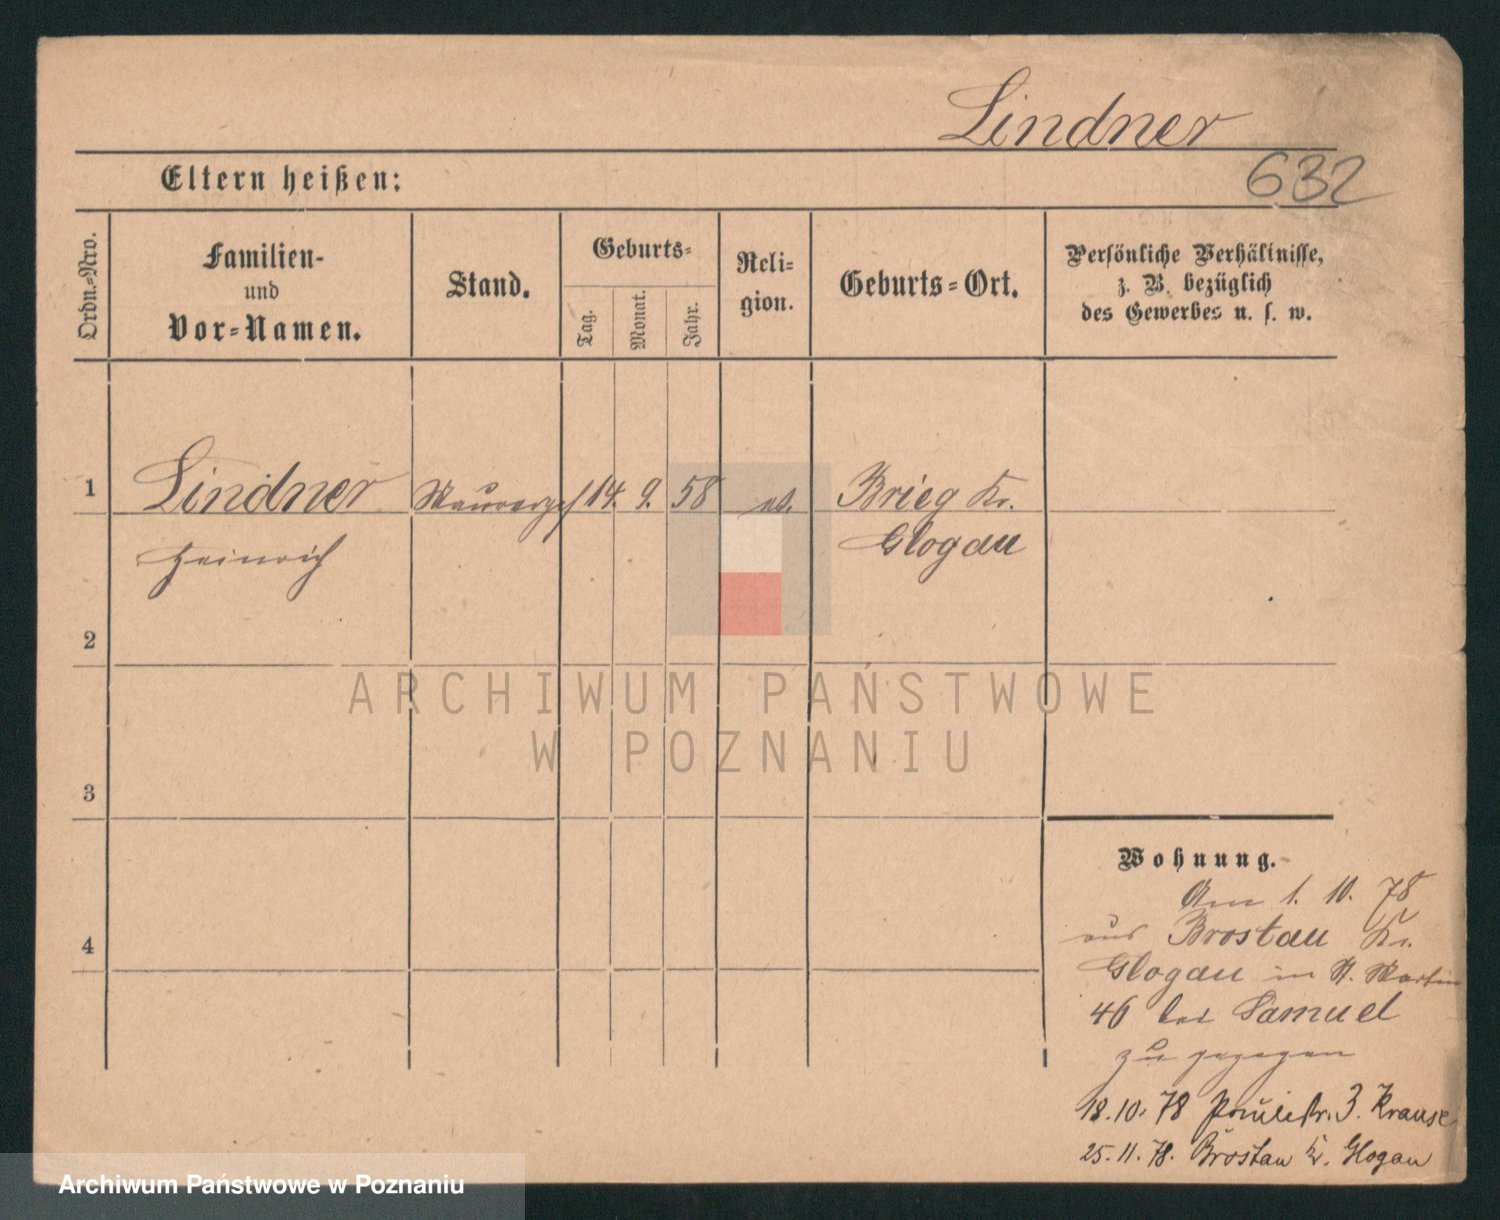 Lindner
632
Eltern heißen:
Ordn.-Nro.
Familien-
und
Vor-Namen.
Stand.
Geburts-
Tag.
Monat.
Jahr.
Reli-
gion.
Geburts-Ort.
Persönliche Verhältnisse,
z. B. bezüglich
des Gewerbes u. s. w.
1
Lindner Maurerges 14. 9. 58 ev. Brieg Kr.
Heinrich Glogau
2
3
4
ARCHIWUM PAŃSTWOWE
W POZNANIU
Wohnung.
Am 1. 10. 78
aus Brostau Kr.
Glogau in St. Martin
46 bei Samuel
zugezogen
18.10.78 Paulistr. 3. Krause
25.11.78. Brostau Kr. Glogau
Archiwum Państwowe w Poznaniu